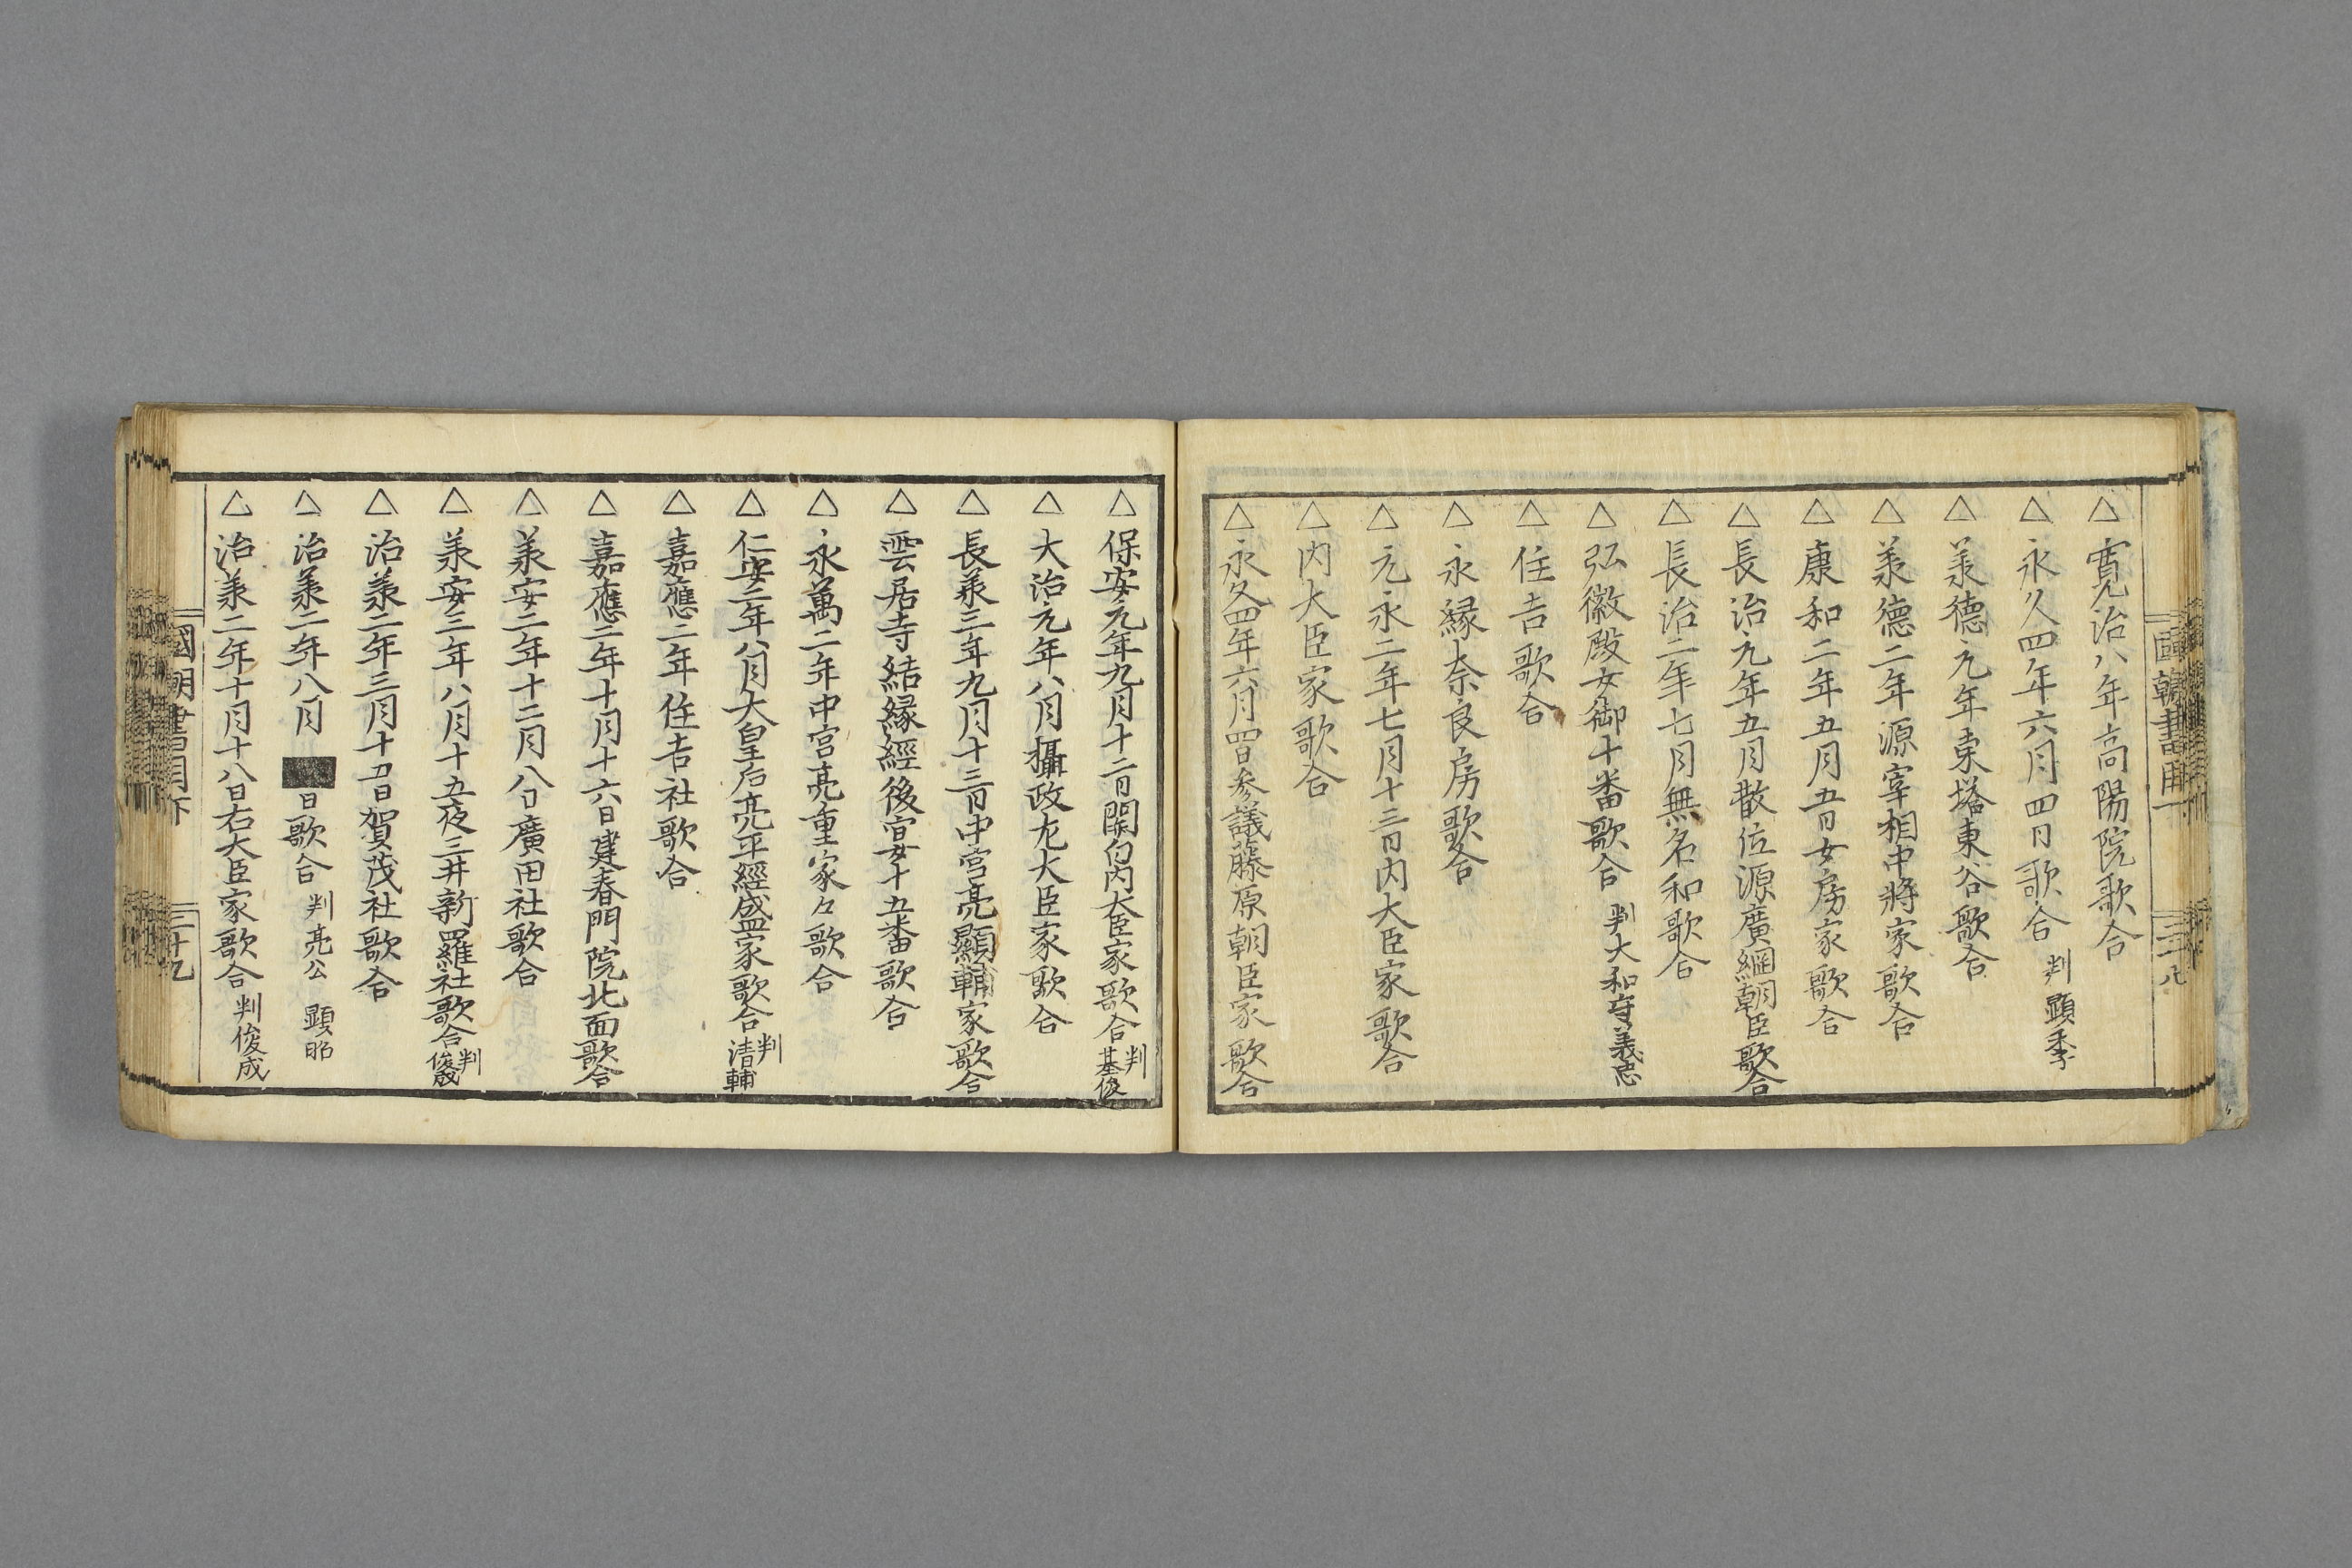 △寛治八年高陽院歌合
△永久四年六月四日歌合 判 顕季
△羕德元年東塔東谷歌合
△羕德二年源宰相中將家歌合
△康和二年五月五日女房家歌合
△長治元年五月散位源廣綱朝臣歌合
△長治二年七月無名和歌合
△弘徽殿女御十番歌合 判大和守義忠
△住吉歌合
△永縁奈良房歌合
△元永二年七月十三日内大臣家歌合
△内大臣家歌合
△永久四年六月四日参議藤原朝臣家歌合
△保安元年九月十二日関白内大臣家歌合 判基俊
△大治元年八月攝政左大臣家歌合
△長羕三年九月十三日中宮亮顯輔家歌合
△雲居寺結縁經後宴十五番歌合
△永萬二年中宮亮重家々歌合
△仁安二年八月大皇后亮平經盛家歌合 判清輔
△嘉應二年住吉社歌合
△嘉應二年十月十六日建春門院北面歌合
△羕安二年十二月八日廣田社歌合
△羕安三年八月十五夜三井新羅社歌合 判俊成
△治羕二年三月十五日賀茂社歌合
△治羕二年八月 日歌合 判亮公 顕昭
△治羕二年十月十八日右大臣家歌合 判俊成
三十九